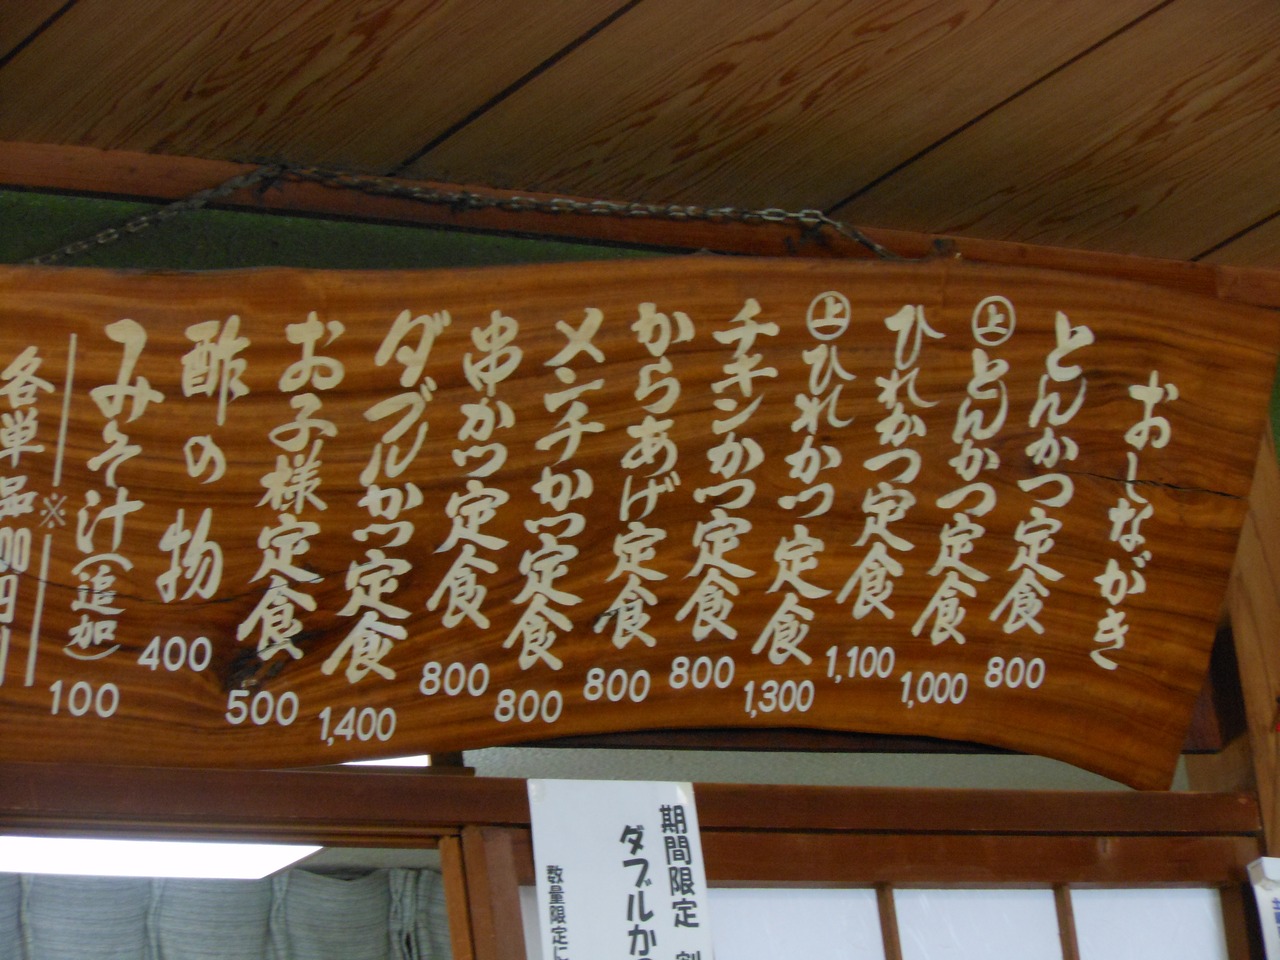 おしながき
とんかつ定食 800
㊤とんかつ定食 1,000
ひれかつ定食 1,100
㊤ひれかつ定食 1,300
チキンかつ定食 800
からあげ定食 800
メンチかつ定食 800
串かつ定食 800
ダブルかつ定食 1,400
お子様定食 500
酢の物 400
みそ汁(追加) 100
※
各単品
期間限定
ダブルか
数量限定に